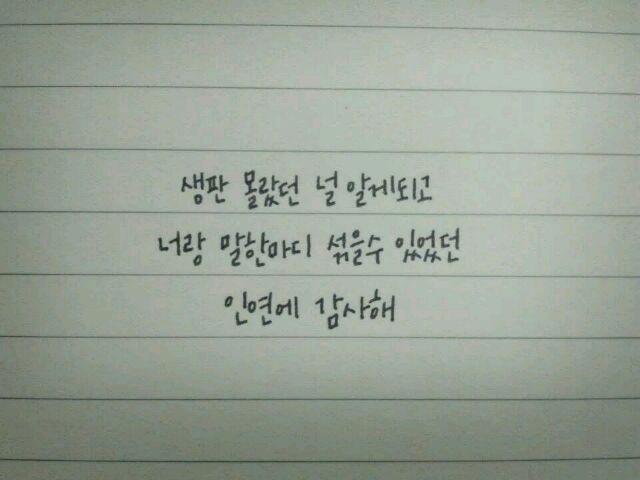 생판 몰랐던 널 알게되고
너랑 말한마디 섞을수 있었던
인연에 감사해